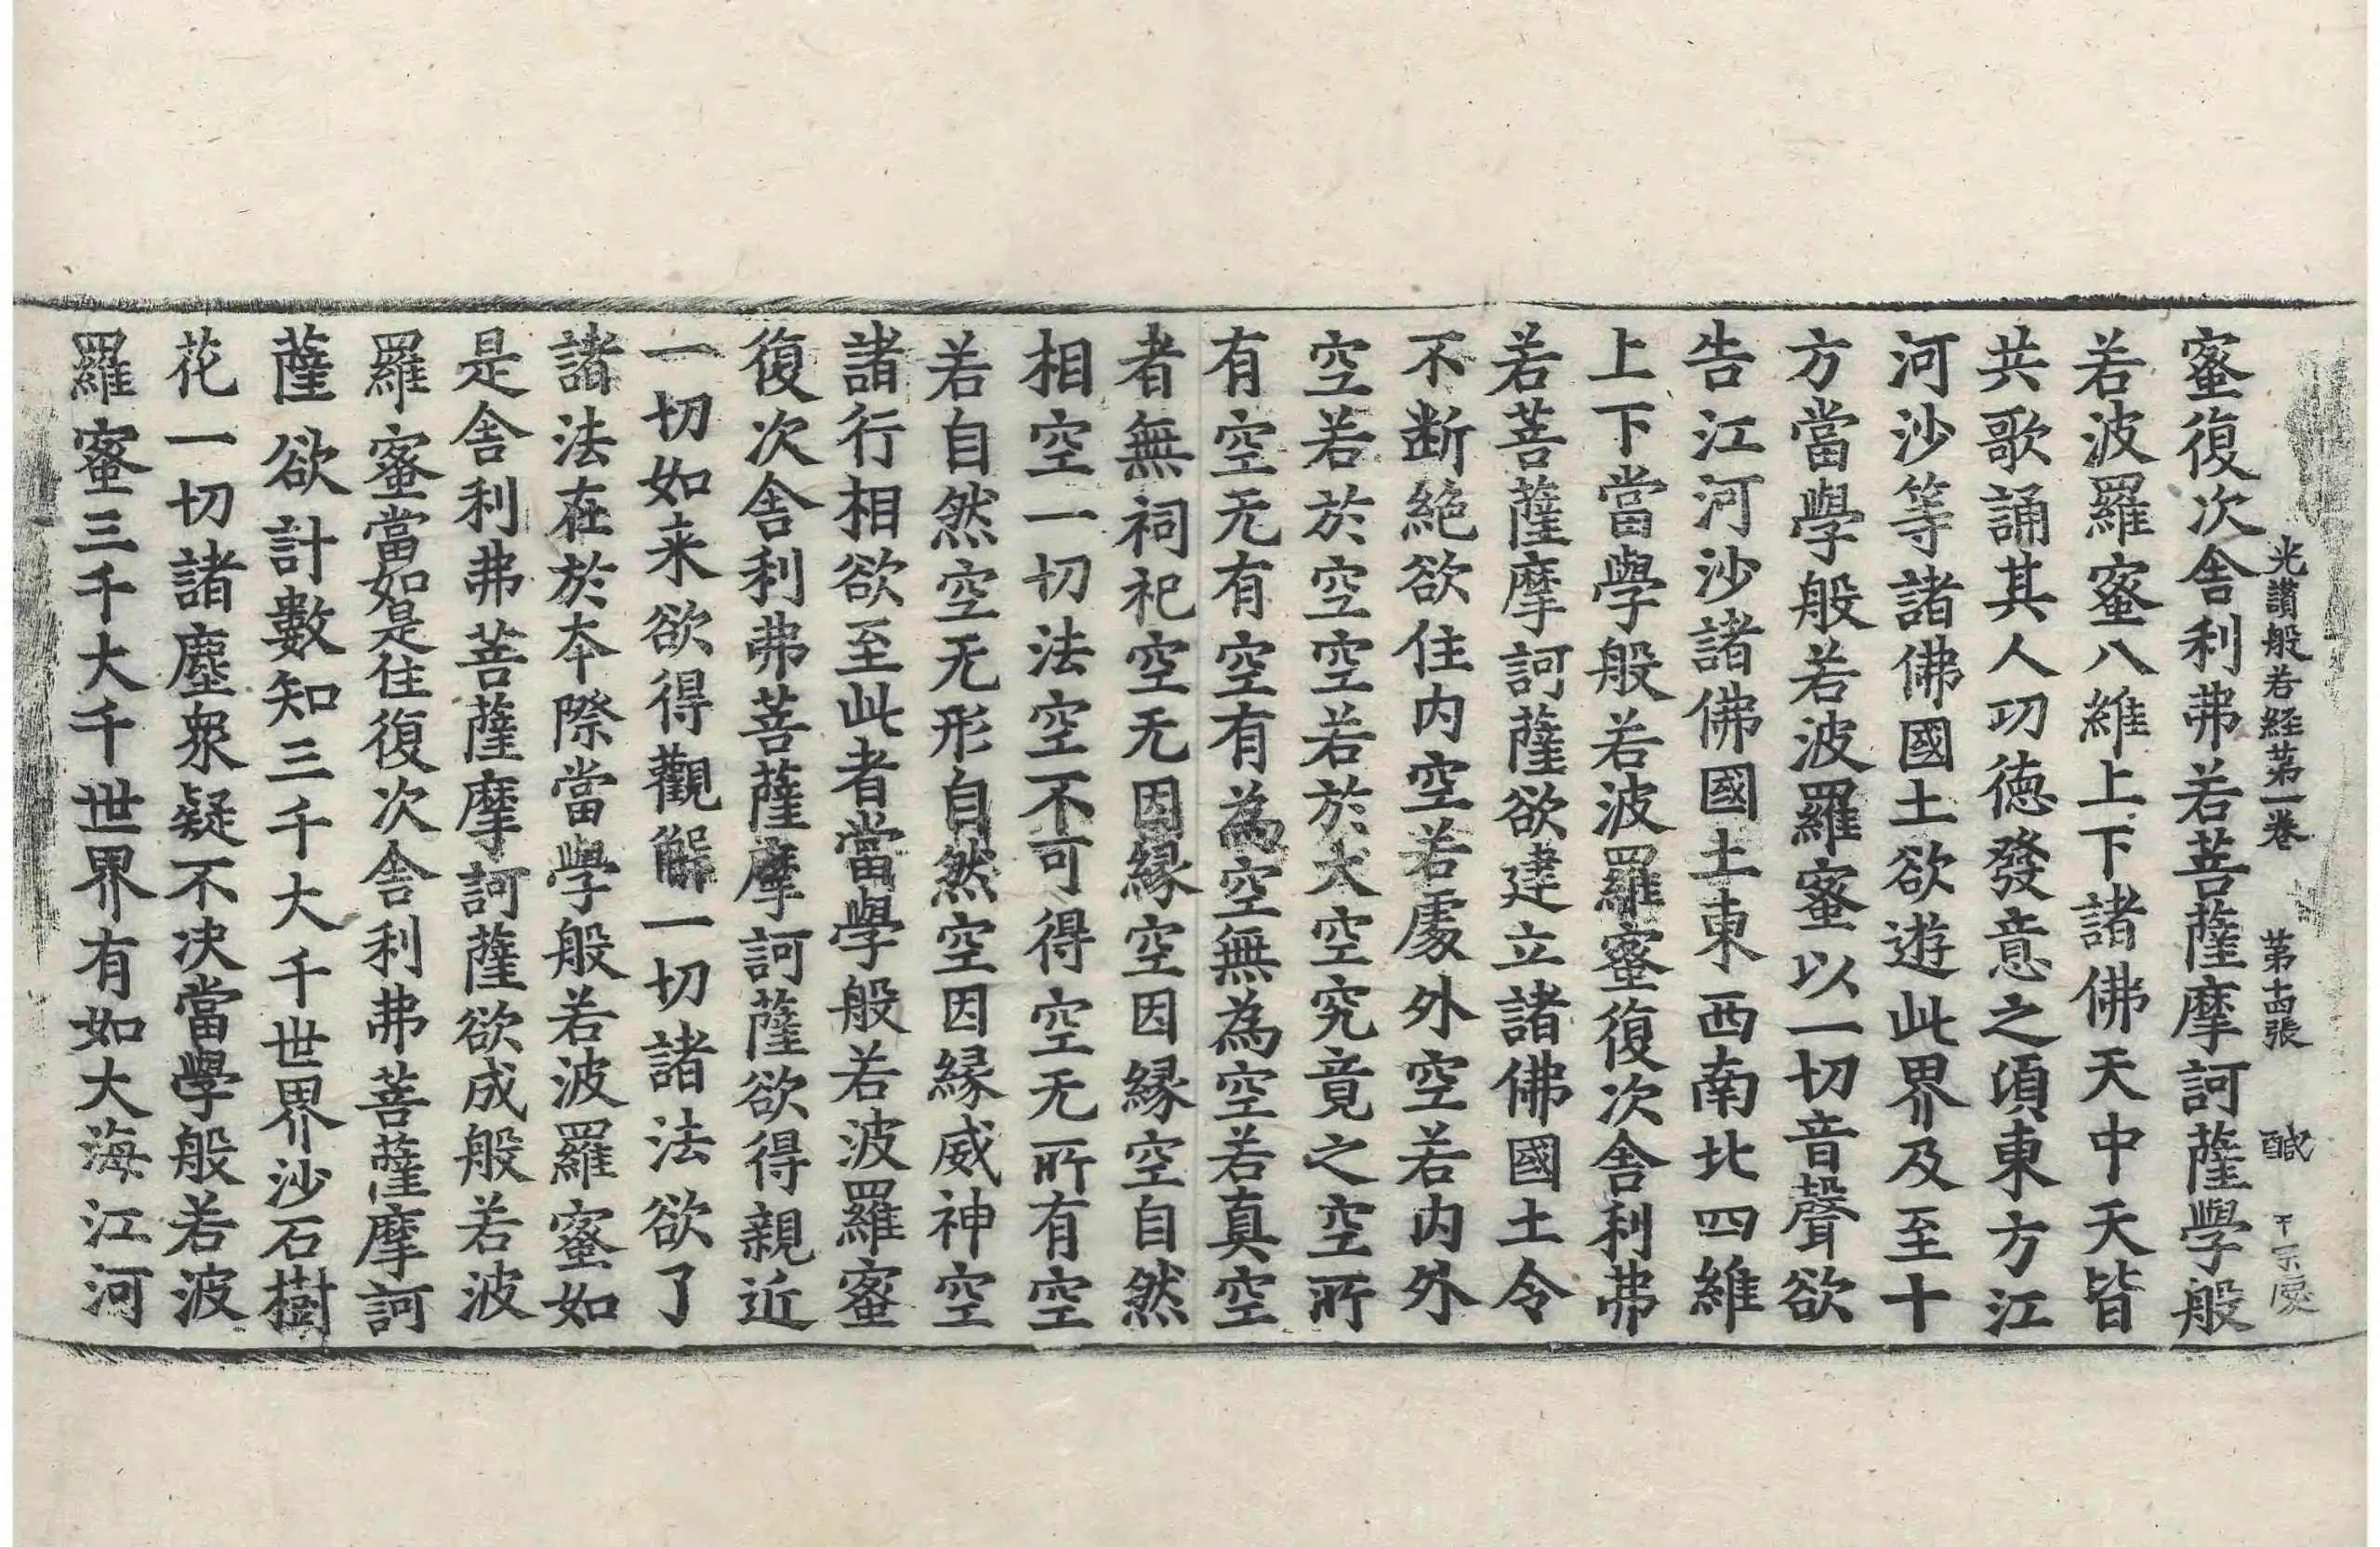 光讃般若経苐一巻　苐十四張　醎
蜜復次舎利弗若菩薩摩訶薩學般
若波羅蜜八維上下諸佛天中天皆
共歌誦其人㓛徳發意之頃東方江
河沙等諸佛國土欲遊此界及至十
方當學般若波羅蜜以一切音聲欲
告江河沙諸佛國土東西南北四維
上下當學般若波羅蜜復次舎利弗
若菩薩摩訶薩欲建立諸佛國土令
不断絶欲住内空若處外空若内外
空若於空空若於大空究竟之空所
有空无有空有為空無為空若真空
者無祠祀空无因縁空因縁空自然
相空一切法空不可得空无所有空
若自然空无形自然空因縁威神空
諸行相欲至此者當學般若波羅蜜
復次舎利弗菩薩摩訶薩欲得親近
一切如来欲得觀解一切諸法欲了
諸法在於本際當學般若波羅蜜如
是舎利弗菩薩摩訶薩欲成般若波
羅蜜當如是住復次舎利弗菩薩摩訶
薩欲計數知三千大千世界沙石樹
花一切諸塵衆疑不决當學般若波
羅蜜三千大千世界有如大海江河